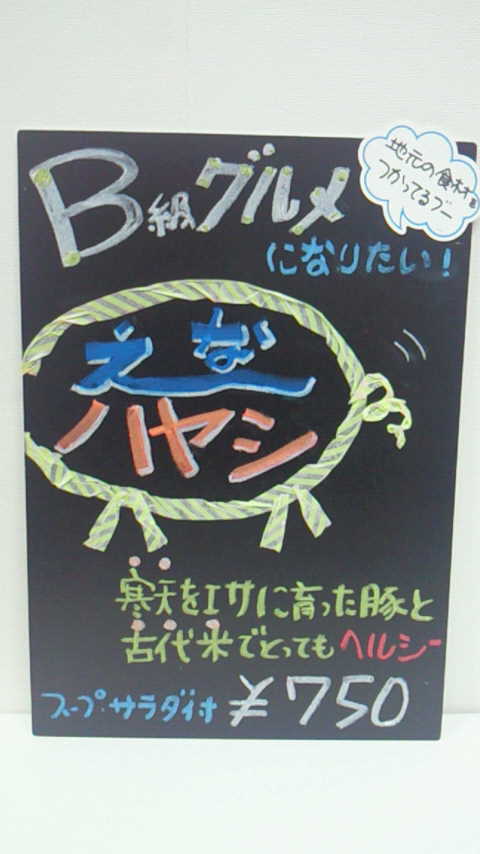 B級グルメ
になりたい!
地元の食材を
つかってるブー
えな
ハヤシ
寒天をエサに育った豚と
古代米でとってもヘルシー
スープ・サラダ付 ¥750